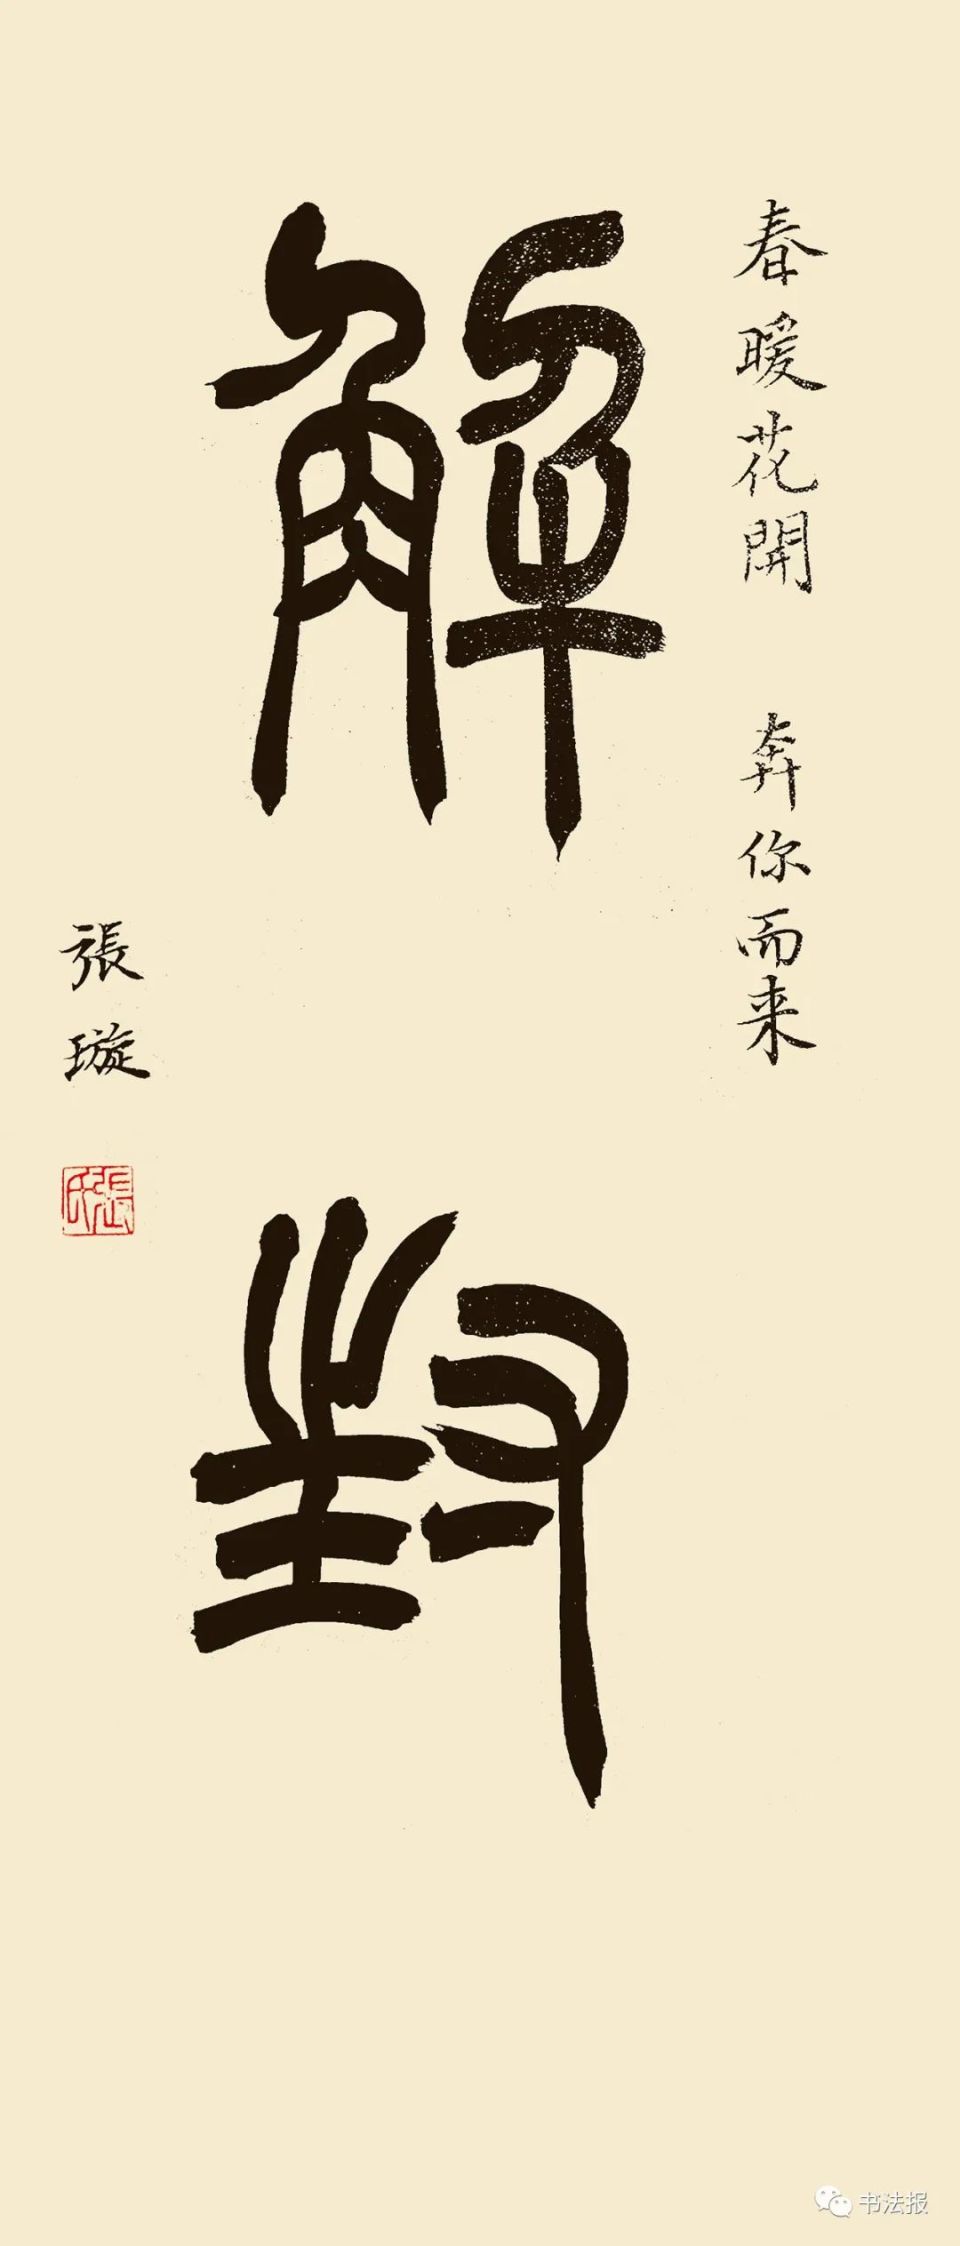 春暖花開 奔你而来
解封
張璇
張氏
书法报